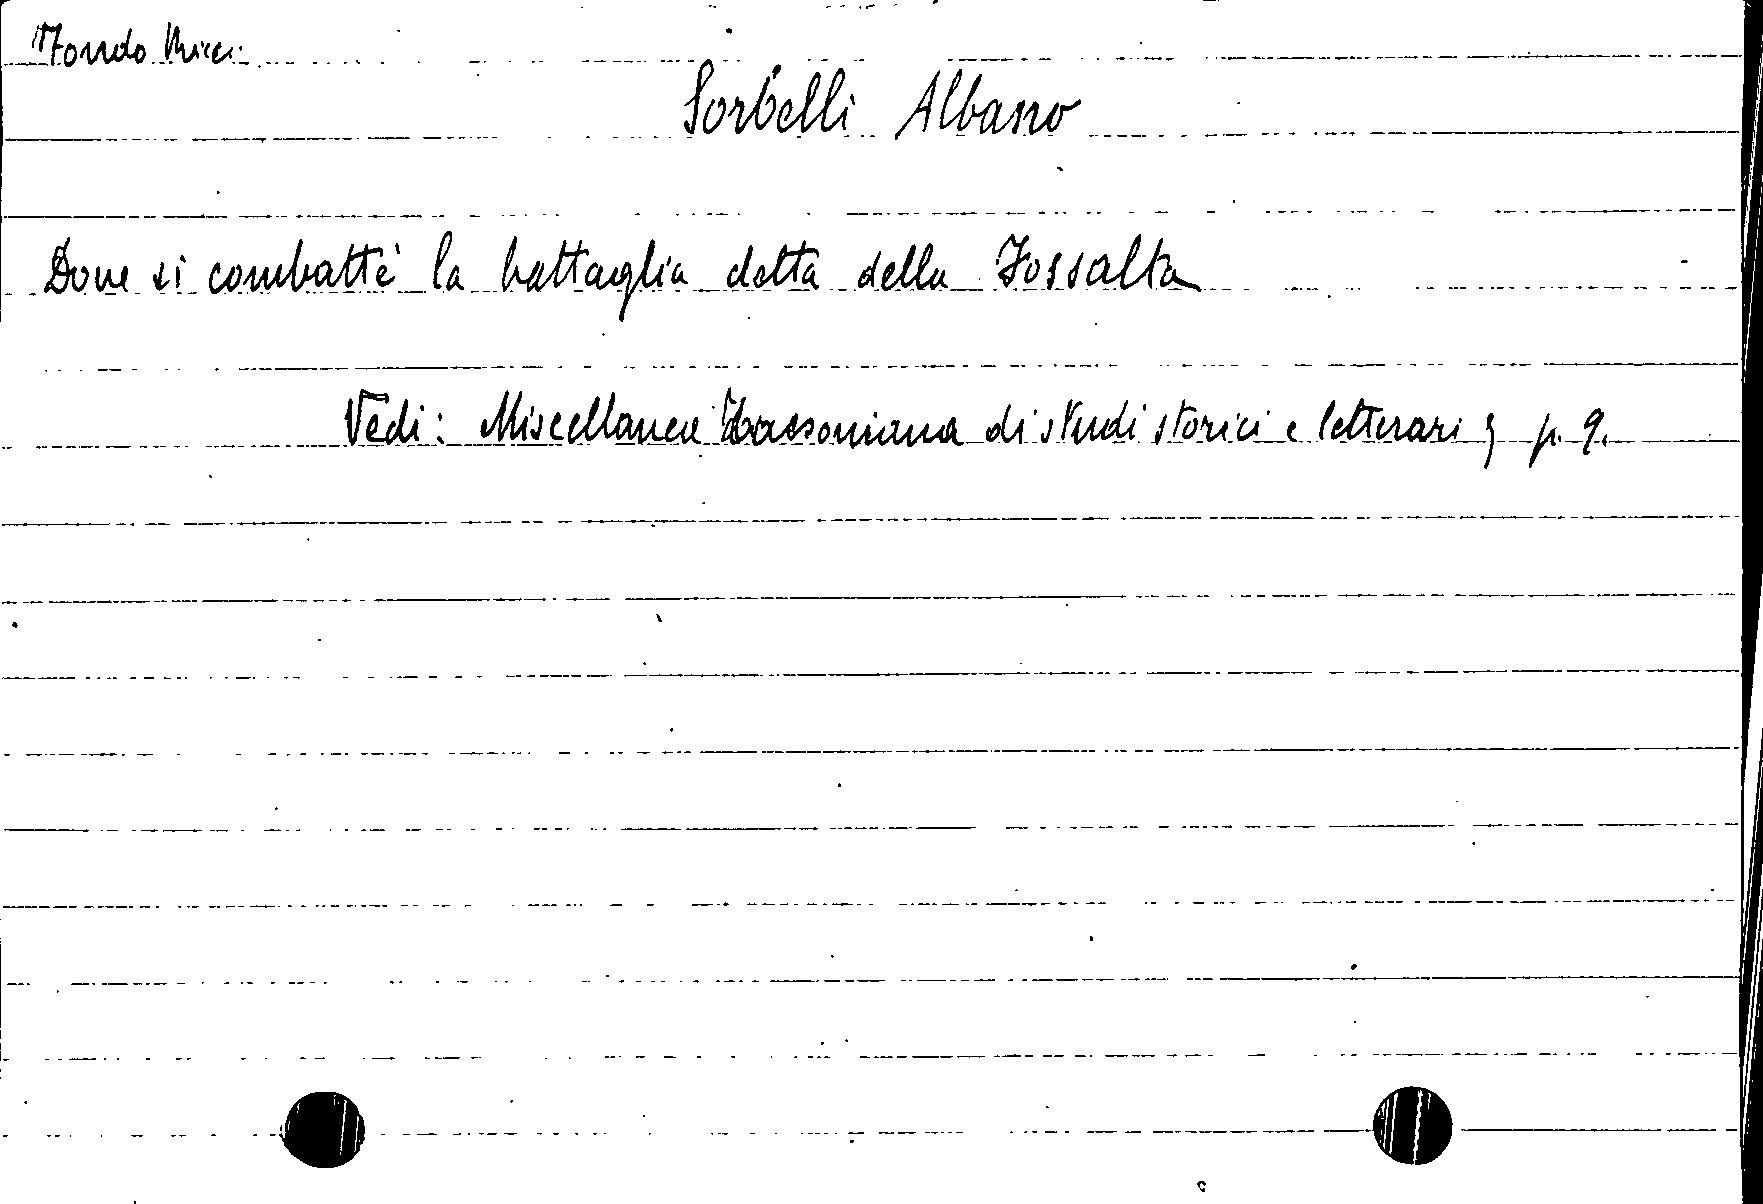 Fondo Ricci
Sorbelli Albano
Dove si combattè la battaglia detta della Fossalta
Vedi: Miscellanea Tassoniana di studi storici e letterari; p. 9.